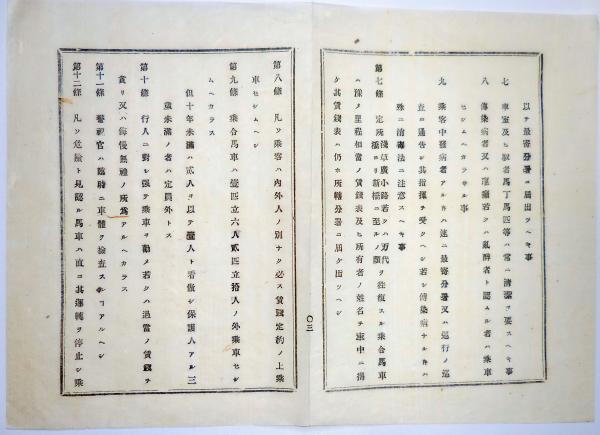 以テ最寄分署ニ届出ツヘキ事
七　車室及ヒ馭者馬丁馬匹等ハ常ニ清潔ヲ要スヘキ事
八　傳染病者又ハ瘋癲若クハ亂醉者ト認ムル者ハ乘車
セシムヘカラサル事
九　乘客中發病者アルトキハ速ニ最寄分署又ハ巡行ノ巡
査ニ通告シ其指揮ヲ受クヘシ若シ傳染病ナルトキハ
殊ニ消毒法ニ注意スヘキ事
第七條　定所
淺草廣小路若クハ万代
橋ヨリ新橋ニ至ルノ類
ヲ往復スル乘合馬車
ハ豫メ里程相當ノ賃錢表及ヒ所有者ノ姓名ヲ車中ニ揭
ケ其賃錢表ハ仍ホ所轄分署ニ届ケ出ツヘシ
〇三
第八條　凡ソ乘客ハ內外人ノ別ナク必ス賃錢定約ノ上乘
車セシムヘシ
第九條　乘合馬車ハ壹匹立六人貳匹立拾人ノ外乘車セシ
ムヘカラス
但十年未滿ハ貳人ヲ以テ壹人ト看做シ保護人アル三
歲未滿ノ者ハ定員外トス
第十條　行人ニ對シ强テ乘車ヲ勸メ若クハ過當ノ賃錢ヲ
貪リ又ハ侮慢無禮ノ所爲アルヘカラス
第十一條　警視官ハ臨時ニ車體ヲ檢査スルコアルヘシ
第十二條　凡ソ危險ト見認ル馬車ハ直ニ其運轉ヲ停止シ乘